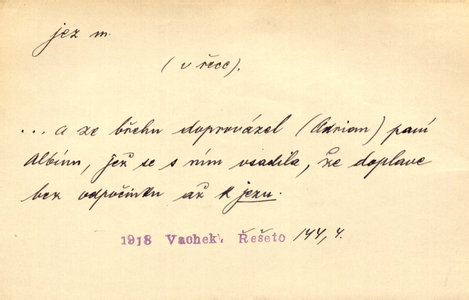 jez m.
(v řece).
... a ze břehu doprovázel (Adrian) paní
Albínu, jež se s ním vsadila, že doplave
bez odpočinku až k jezu.
1918 Vachek, Řešeto 144, 4.